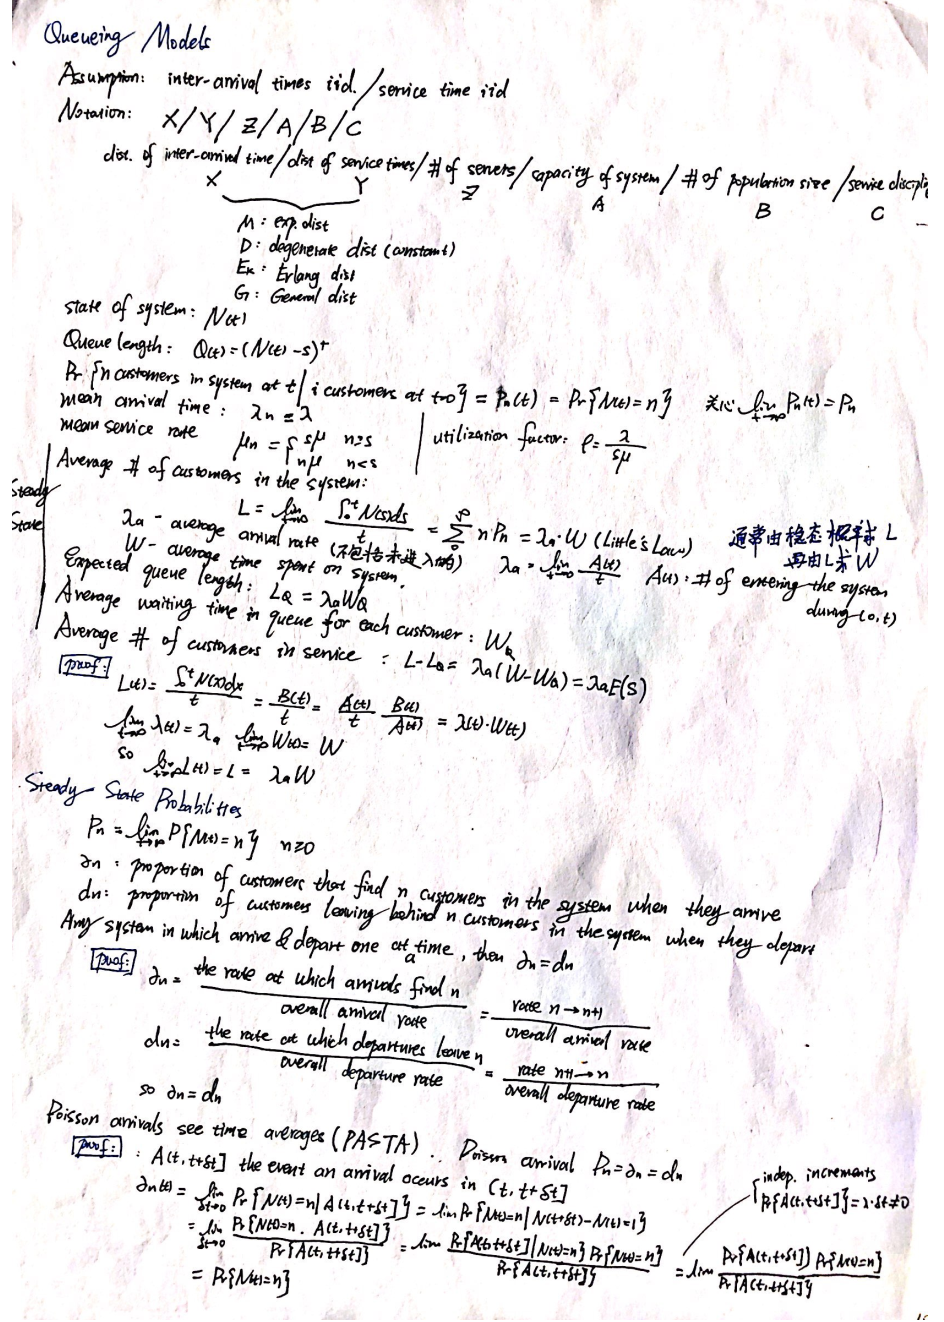 Queueing Models
Assumption: inter-arrival times iid. / service time iid
Notation: X/Y/Z/A/B/C
dist. of inter-arrival time / dist of service times / # of servers / capacity of system / # of population size / service discipli
X Y Z A B C
M: exp. dist
D: degenerate dist (constant)
Ek: Erlang dist
G: General dist
state of system: N(t)
Queue length: Q(t) = (N(t) - s)⁺
Pr{n customers in system at t | i customers at t=0} = Pn(t) = Pr{N(t) = n} 关心 lim t→∞ Pn(t) = Pn
mean arrival time: λn = λ
mean service rate μn = { sμ n≥s
nμ n<s
utilization factor: ρ = λ/sμ
Steady State
Average # of customers in the system:
L = lim t→∞ ∫₀ᵗ N(s)ds / t = Σ₀^∞ n Pn = λa·W (Little's Law)
通常由稳态概率求 L
再由 L 求 W
λa - average arrival rate (不包括未进入的) λa = lim t→∞ A(t)/t A(t): # of entering the system
during (0,t)
W - average time spent on system.
Expected queue length: LQ = λa WQ
Average waiting time in queue for each customer: WQ
Average # of customers in service: L - LQ = λa(W - WQ) = λa E(S)
proof:
L(t) = ∫₀ᵗ N(x)dx / t = B(t)/t = A(t)/t B(t)/A(t) = λ(t)·W(t)
lim t→∞ λ(t) = λa lim t→∞ W(t) = W
so lim t→∞ L(t) = L = λa W
Steady State Probabilities
Pn = lim t→∞ P{N(t) = n} n≥0
an: proportion of customers that find n customers in the system when they arrive
dn: proportion of customers leaving behind n customers in the system when they depart
Any system in which arrive & depart one at a time, then an = dn
proof:
an = the rate at which arrivals find n / overall arrival rate = rate n→n+1 / overall arrival rate
dn = the rate at which departures leave n / overall departure rate = rate n+1→n / overall departure rate
so an = dn
Poisson arrivals see time averages (PASTA) ∴ Poisson arrival Pn = an = dn
proof: : A(t, t+δt] the event an arrival occurs in (t, t+δt]
indep. increments
Pr{A(t, t+δt]} = λ·δt ≠ 0
an(t) = lim δt→0 Pr{N(t) = n | A(t, t+δt]} = lim Pr{N(t) = n | N(t+δt) - N(t) = 1}
= lim δt→0 Pr{N(t) = n, A(t, t+δt]} / Pr{A(t, t+δt]} = lim Pr{A(t, t+δt] | N(t) = n} Pr{N(t) = n} / Pr{A(t, t+δt]} = lim Pr{A(t, t+δt]} Pr{N(t) = n} / Pr{A(t, t+δt]}
= Pr{N(t) = n}